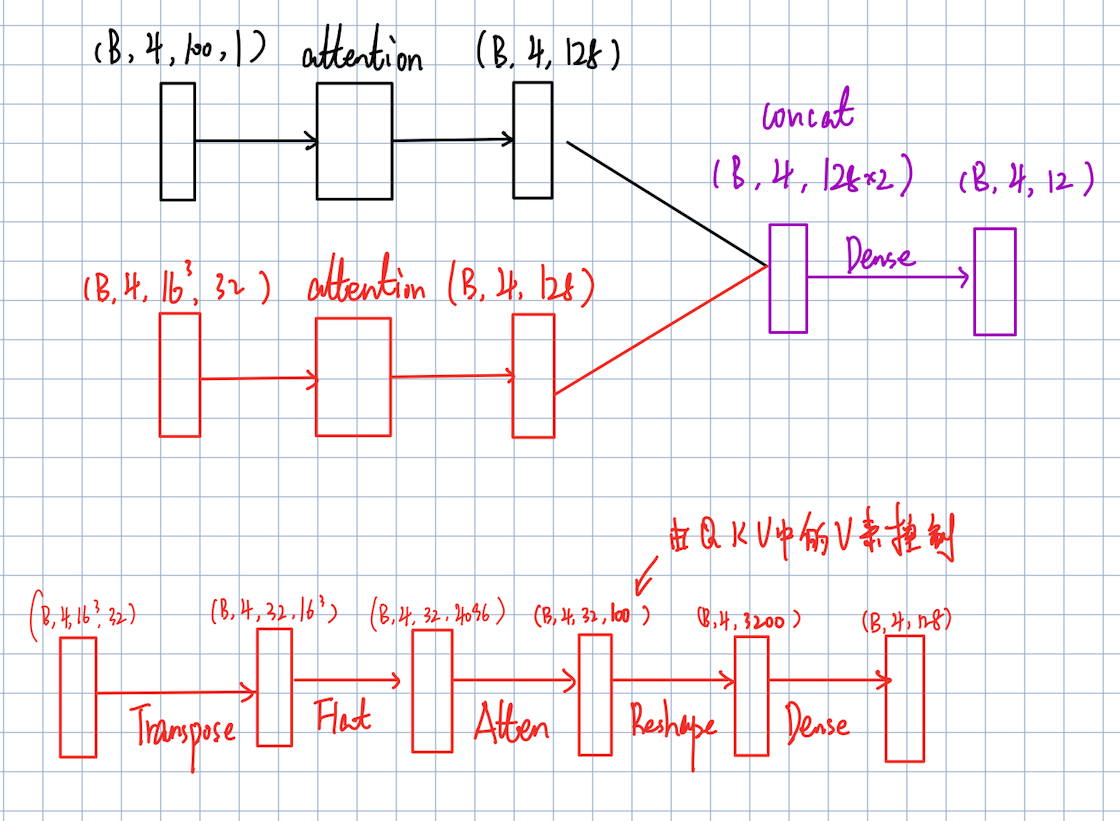 (B, 4, 100, 1) attention (B, 4, 128)
concat
(B, 4, 128×2) (B, 4, 12)
Dense
(B, 4, 16³, 32) attention (B, 4, 128)
由QKV中的V来控制
(B, 4, 16³, 32) (B, 4, 32, 16³) (B, 4, 32, 4096) (B, 4, 32, 100) (B, 4, 3200) (B, 4, 128)
Transpose Flat Atten Reshape Dense